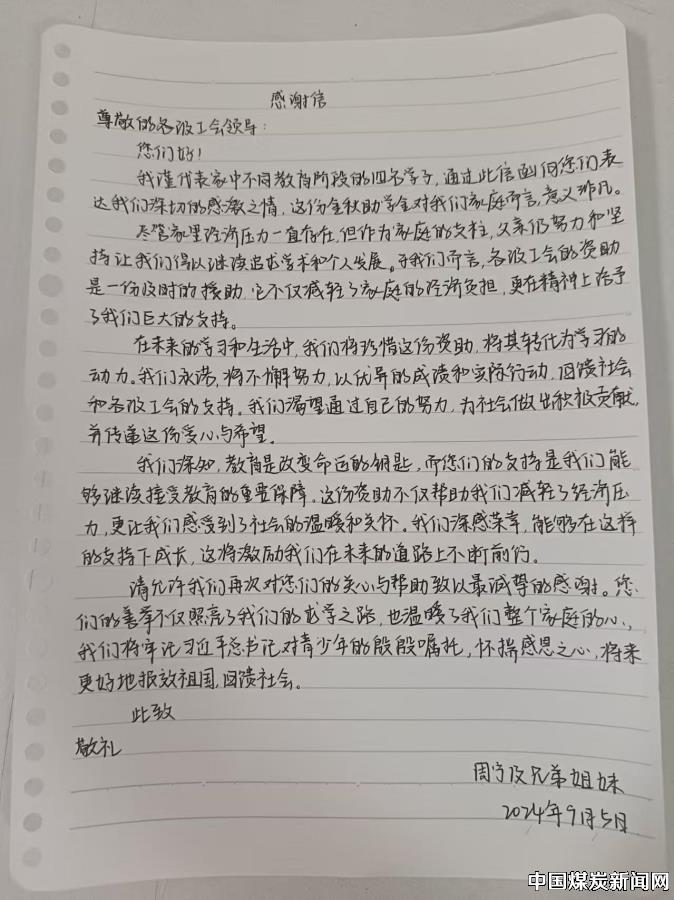 感谢信
尊敬的各级工会领导:
您们好!
我谨代表家中不同教育阶段的四名学子,通过此信函向您们表
达我们深切的感激之情,这份金秋助学金对我们家庭而言,意义非凡。
尽管家里经济压力一直存在,但作为家庭的支柱,父亲仍努力和坚
持让我们得以继续追求学术和个人发展。于我们而言,各级工会的资助
是一份及时的援助,它不仅减轻了家庭的经济负担,更在精神上给予
了我们巨大的支持。
在未来的学习和生活中,我们将珍惜这份资助,将其转化为学习的
动力。我们承诺,将不懈努力,以优异的成绩和实际行动,回馈社会
和各级工会的支持。我们渴望通过自己的努力,为社会做出积极贡献,
并传递这份爱心与希望。
我们深知,教育是改变命运的钥匙,而您们的支持是我们能
够继续接受教育的重要保障。这份资助不仅帮助我们减轻了经济压
力,更让我们感受到了社会的温暖和关怀。我们深感荣幸,能够在这样
的支持下成长,这将激励我们在未来的道路上不断前行。
请允许我们再次对您们的关心与帮助致以最诚挚的感谢。您
们的善举不仅照亮了我们的求学之路,也温暖了我们整个家庭的心,
我们将牢记习近平总书记对青少年的殷殷嘱托,怀揣感恩之心,将来
更好地报效祖国,回馈社会。
此致
敬礼
周宁及兄弟姐妹
2024年9月5日
中国煤炭新闻网